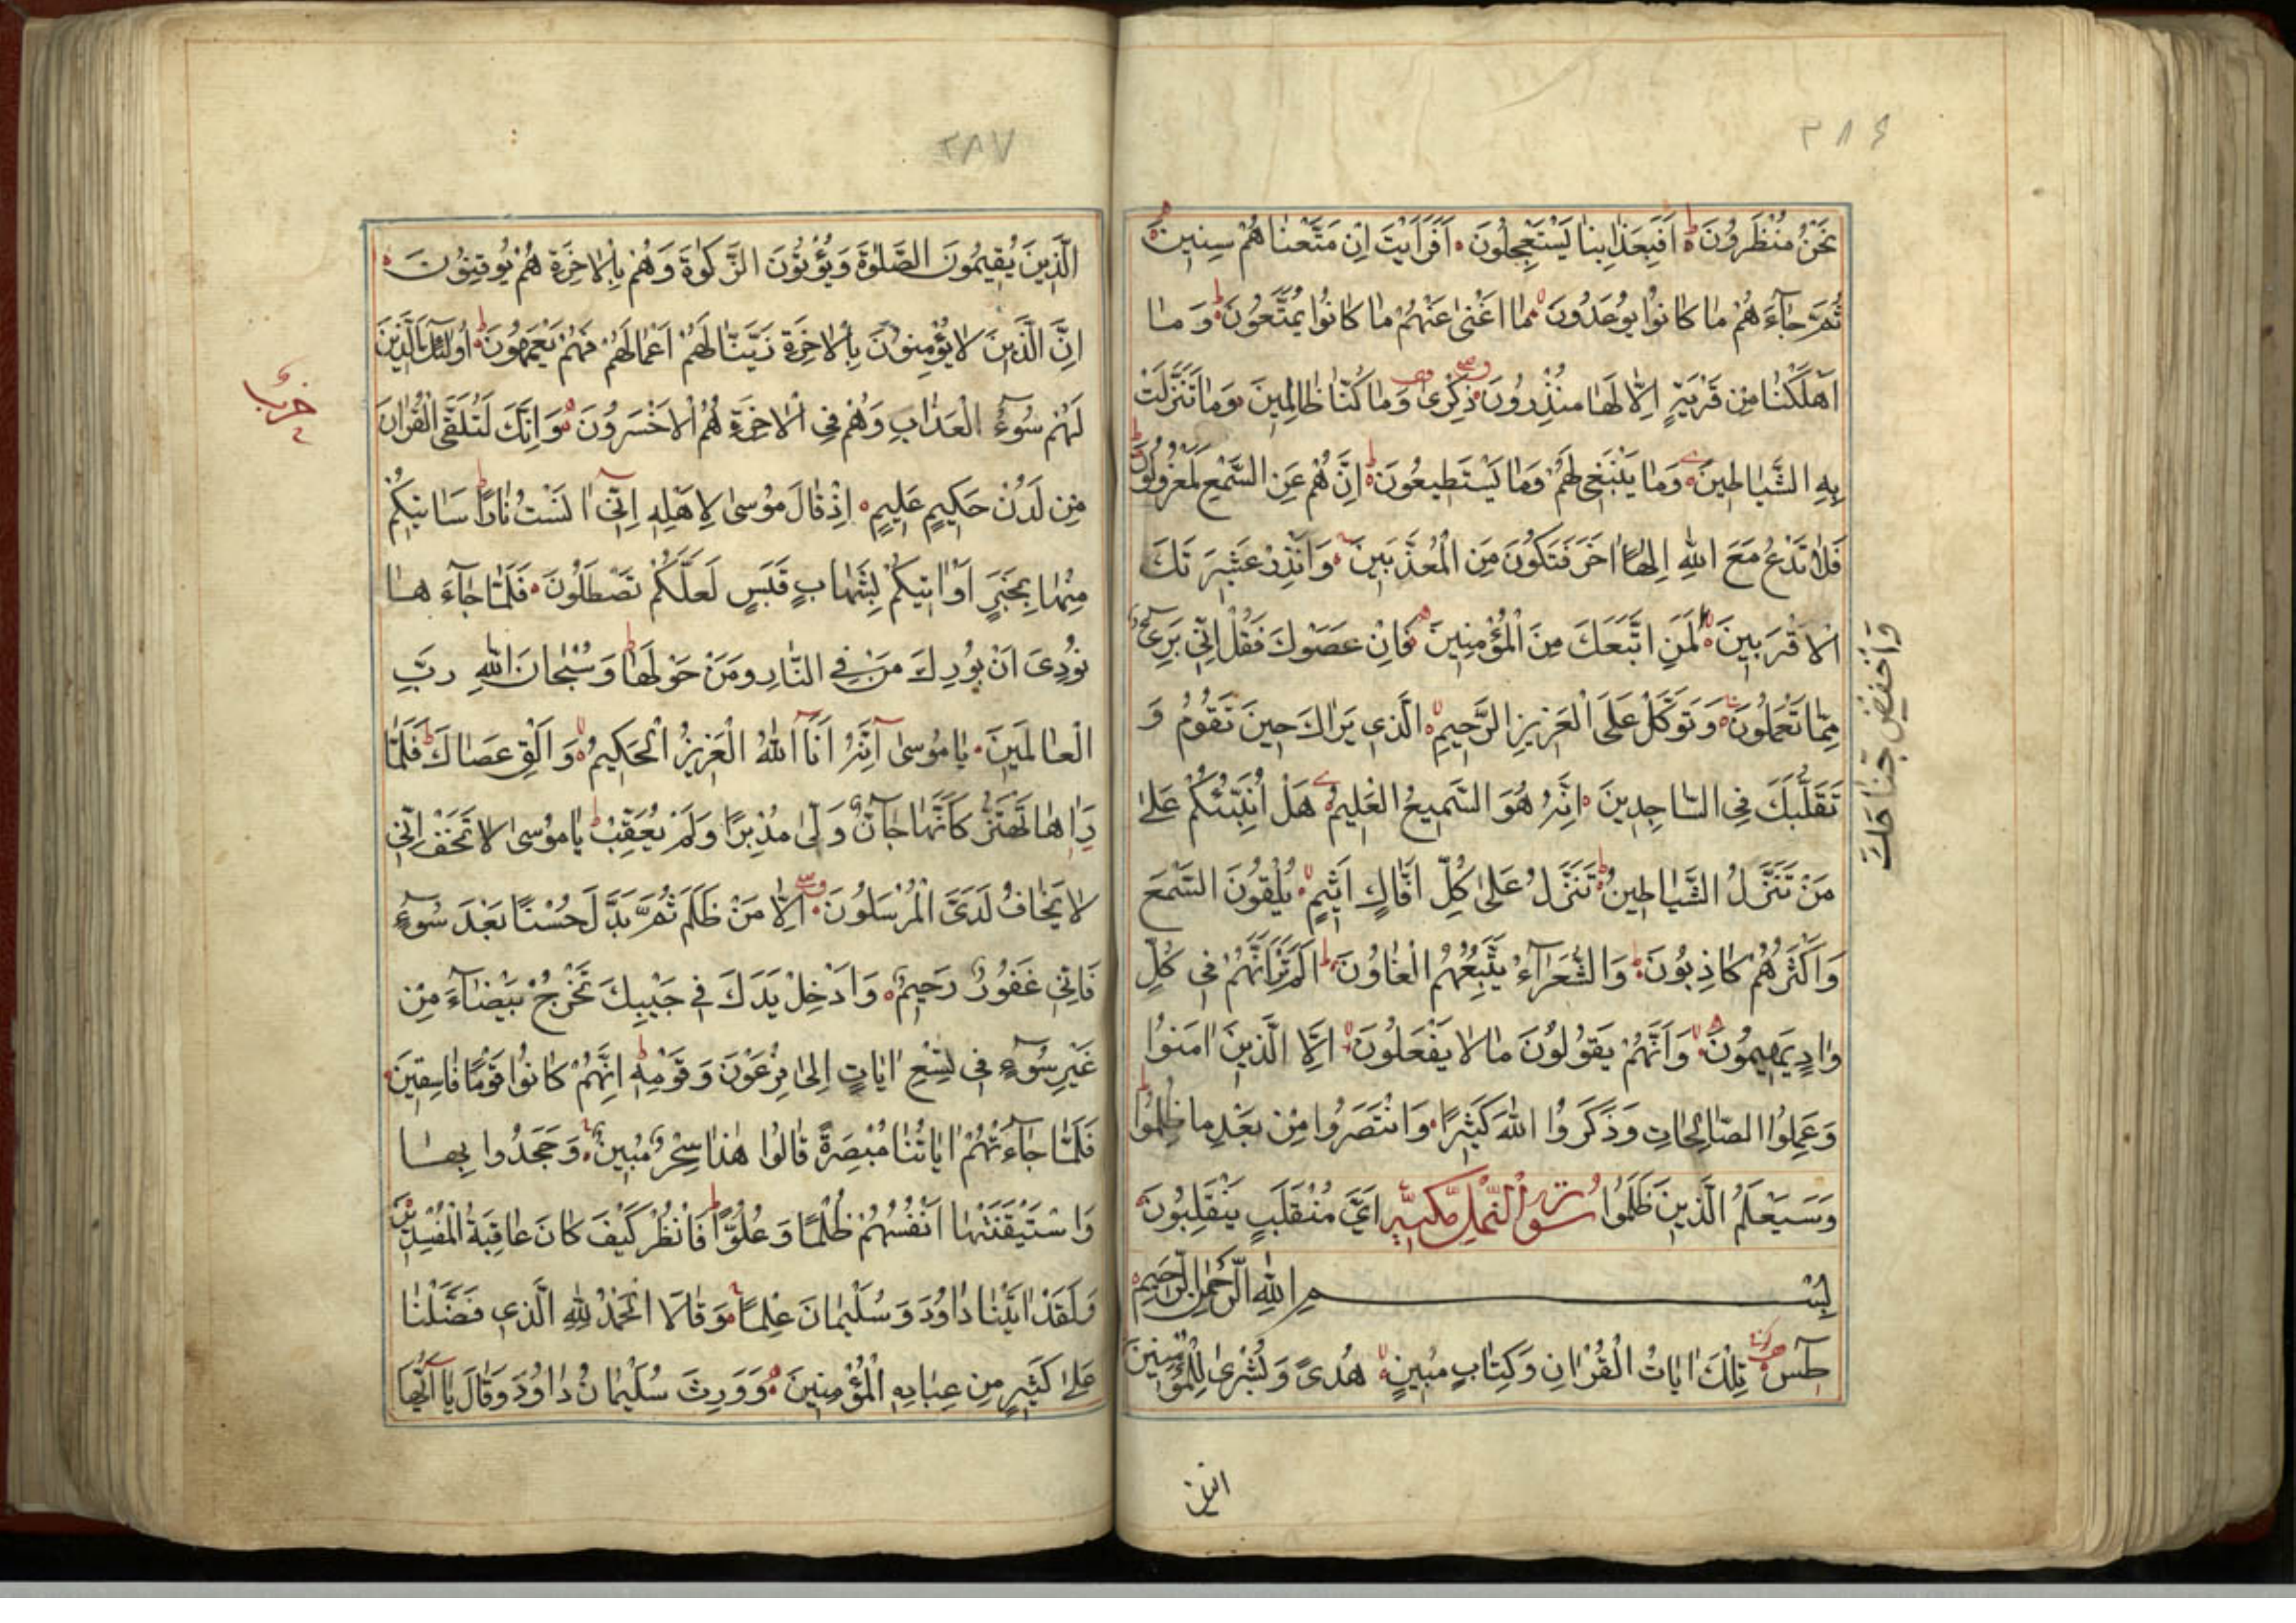 ٢٨٦
نَحْنُ مُنْظَرُونَ اَفَبِعَذَابِنَا يَسْتَعْجِلُونَ اَفَرَاَيْتَ اِنْ مَتَّعْنَاهُمْ سِنِينَ
ثُمَّ جَآءَهُمْ مَا كَانُوا يُوعَدُونَ مَا اَغْنٰى عَنْهُمْ مَا كَانُوا يُمَتَّعُونَ وَمَا
اَهْلَكْنَا مِنْ قَرْيَةٍ اِلَّا لَهَا مُنْذِرُونَ ذِكْرٰى وَمَا كُنَّا ظَالِمِينَ وَمَا تَنَزَّلَتْ
بِهِ الشَّيَاطِينَ وَمَا يَنْبَغِى لَهُمْ وَمَا يَسْتَطِيعُونَ اِنَّهُمْ عَنِ السَّمْعِ لَمَعْزُولُونَ
فَلَا تَدْعُ مَعَ اللهِ اِلٰهًا اٰخَرَ فَتَكُونَ مِنَ الْمُعَذَّبِينَ وَاَنْذِرْ عَشِيرَتَكَ
الْاَقْرَبِينَ لِمَنِ اتَّبَعَكَ مِنَ الْمُؤْمِنِينَ فَاِنْ عَصَوْكَ فَقُلْ اِنِّى بَرِىءٌ
وَاخْفِضْ جَنَاحَكَ
مِمَّا تَعْمَلُونَ وَتَوَكَّلْ عَلَى الْعَزِيزِ الرَّحِيمِ الَّذِى يَرٰاكَ حِينَ تَقُومُ وَ
تَقَلُّبَكَ فِى السَّاجِدِينَ اِنَّهُ هُوَ السَّمِيعُ الْعَلِيمُ هَلْ اُنَبِّئُكُمْ عَلٰى
مَنْ تَنَزَّلُ الشَّيَاطِينُ تَنَزَّلُ عَلٰى كُلِّ اَفَّاكٍ اَثِيمٍ يُلْقُونَ السَّمْعَ
وَاَكْثَرُهُمْ كَاذِبُونَ وَالشُّعَرَآءُ يَتَّبِعُهُمُ الْغَاوُنَ اَلَمْ تَرَ اَنَّهُمْ فِى كُلِّ
وَادٍ يَهِيمُونَ وَاَنَّهُمْ يَقُولُونَ مَا لَا يَفْعَلُونَ اِلَّا الَّذِينَ اٰمَنُوا
وَعَمِلُوا الصَّالِحَاتِ وَذَكَرُوا اللهَ كَثِيرًا وَانْتَصَرُوا مِنْ بَعْدِ مَا ظُلِمُوا
وَسَيَعْلَمُ الَّذِينَ ظَلَمُوا سورة النمل مكية اَىَّ مُنْقَلَبٍ يَنْقَلِبُونَ
بِسْمِ اللهِ الرَّحْمٰنِ الرَّحِيمِ
طٰسٓ تِلْكَ اٰيَاتُ الْقُرْاٰنِ وَكِتَابٍ مُبِينٍ هُدًى وَبُشْرٰى لِلْمُؤْمِنِينَ
الذين
٢٨٧
الَّذِينَ يُقِيمُونَ الصَّلٰوةَ وَيُؤْتُونَ الزَّكٰوةَ وَهُمْ بِالْاٰخِرَةِ هُمْ يُوقِنُونَ
اِنَّ الَّذِينَ لَا يُؤْمِنُونَ بِالْاٰخِرَةِ زَيَّنَّا لَهُمْ اَعْمَالَهُمْ فَهُمْ يَعْمَهُونَ اُولٰئِكَ الَّذِينَ
حزب
لَهُمْ سُوٓءُ الْعَذَابِ وَهُمْ فِى الْاٰخِرَةِ هُمُ الْاَخْسَرُونَ وَاِنَّكَ لَتُلَقَّى الْقُرْاٰنَ
مِنْ لَدُنْ حَكِيمٍ عَلِيمٍ اِذْ قَالَ مُوسٰى لِاَهْلِهِ اِنِّىٓ اٰنَسْتُ نَارًا سَاٰتِيكُمْ
مِنْهَا بِخَبَرٍ اَوْ اٰتِيكُمْ بِشِهَابٍ قَبَسٍ لَعَلَّكُمْ تَصْطَلُونَ فَلَمَّا جَآءَهَا
نُودِىَ اَنْ بُورِكَ مَنْ فِى النَّارِ وَمَنْ حَوْلَهَا وَسُبْحَانَ اللهِ رَبِّ
الْعَالَمِينَ يَا مُوسٰىٓ اِنَّهُ اَنَا اللهُ الْعَزِيزُ الْحَكِيمُ وَاَلْقِ عَصَاكَ فَلَمَّا
رَاٰهَا تَهْتَزُّ كَاَنَّهَا جَآنٌّ وَلّٰى مُدْبِرًا وَلَمْ يُعَقِّبْ يَا مُوسٰى لَا تَخَفْ اِنِّى
لَا يَخَافُ لَدَىَّ الْمُرْسَلُونَ اِلَّا مَنْ ظَلَمَ ثُمَّ بَدَّلَ حُسْنًا بَعْدَ سُوٓءٍ
فَاِنِّى غَفُورٌ رَحِيمٌ وَاَدْخِلْ يَدَكَ فِى جَيْبِكَ تَخْرُجْ بَيْضَآءَ مِنْ
غَيْرِ سُوٓءٍ فِى تِسْعِ اٰيَاتٍ اِلٰى فِرْعَوْنَ وَقَوْمِهِ اِنَّهُمْ كَانُوا قَوْمًا فَاسِقِينَ
فَلَمَّا جَآءَتْهُمْ اٰيَاتُنَا مُبْصِرَةً قَالُوا هٰذَا سِحْرٌ مُبِينٌ وَجَحَدُوا بِهَا
وَاسْتَيْقَنَتْهَا اَنْفُسُهُمْ ظُلْمًا وَعُلُوًّا فَانْظُرْ كَيْفَ كَانَ عَاقِبَةُ الْمُفْسِدِينَ
وَلَقَدْ اٰتَيْنَا دَاوُدَ وَسُلَيْمَانَ عِلْمًا وَقَالَا الْحَمْدُ لِلّٰهِ الَّذِى فَضَّلَنَا
عَلٰى كَثِيرٍ مِنْ عِبَادِهِ الْمُؤْمِنِينَ وَوَرِثَ سُلَيْمَانُ دَاوُدَ وَقَالَ يَآ اَيُّهَا